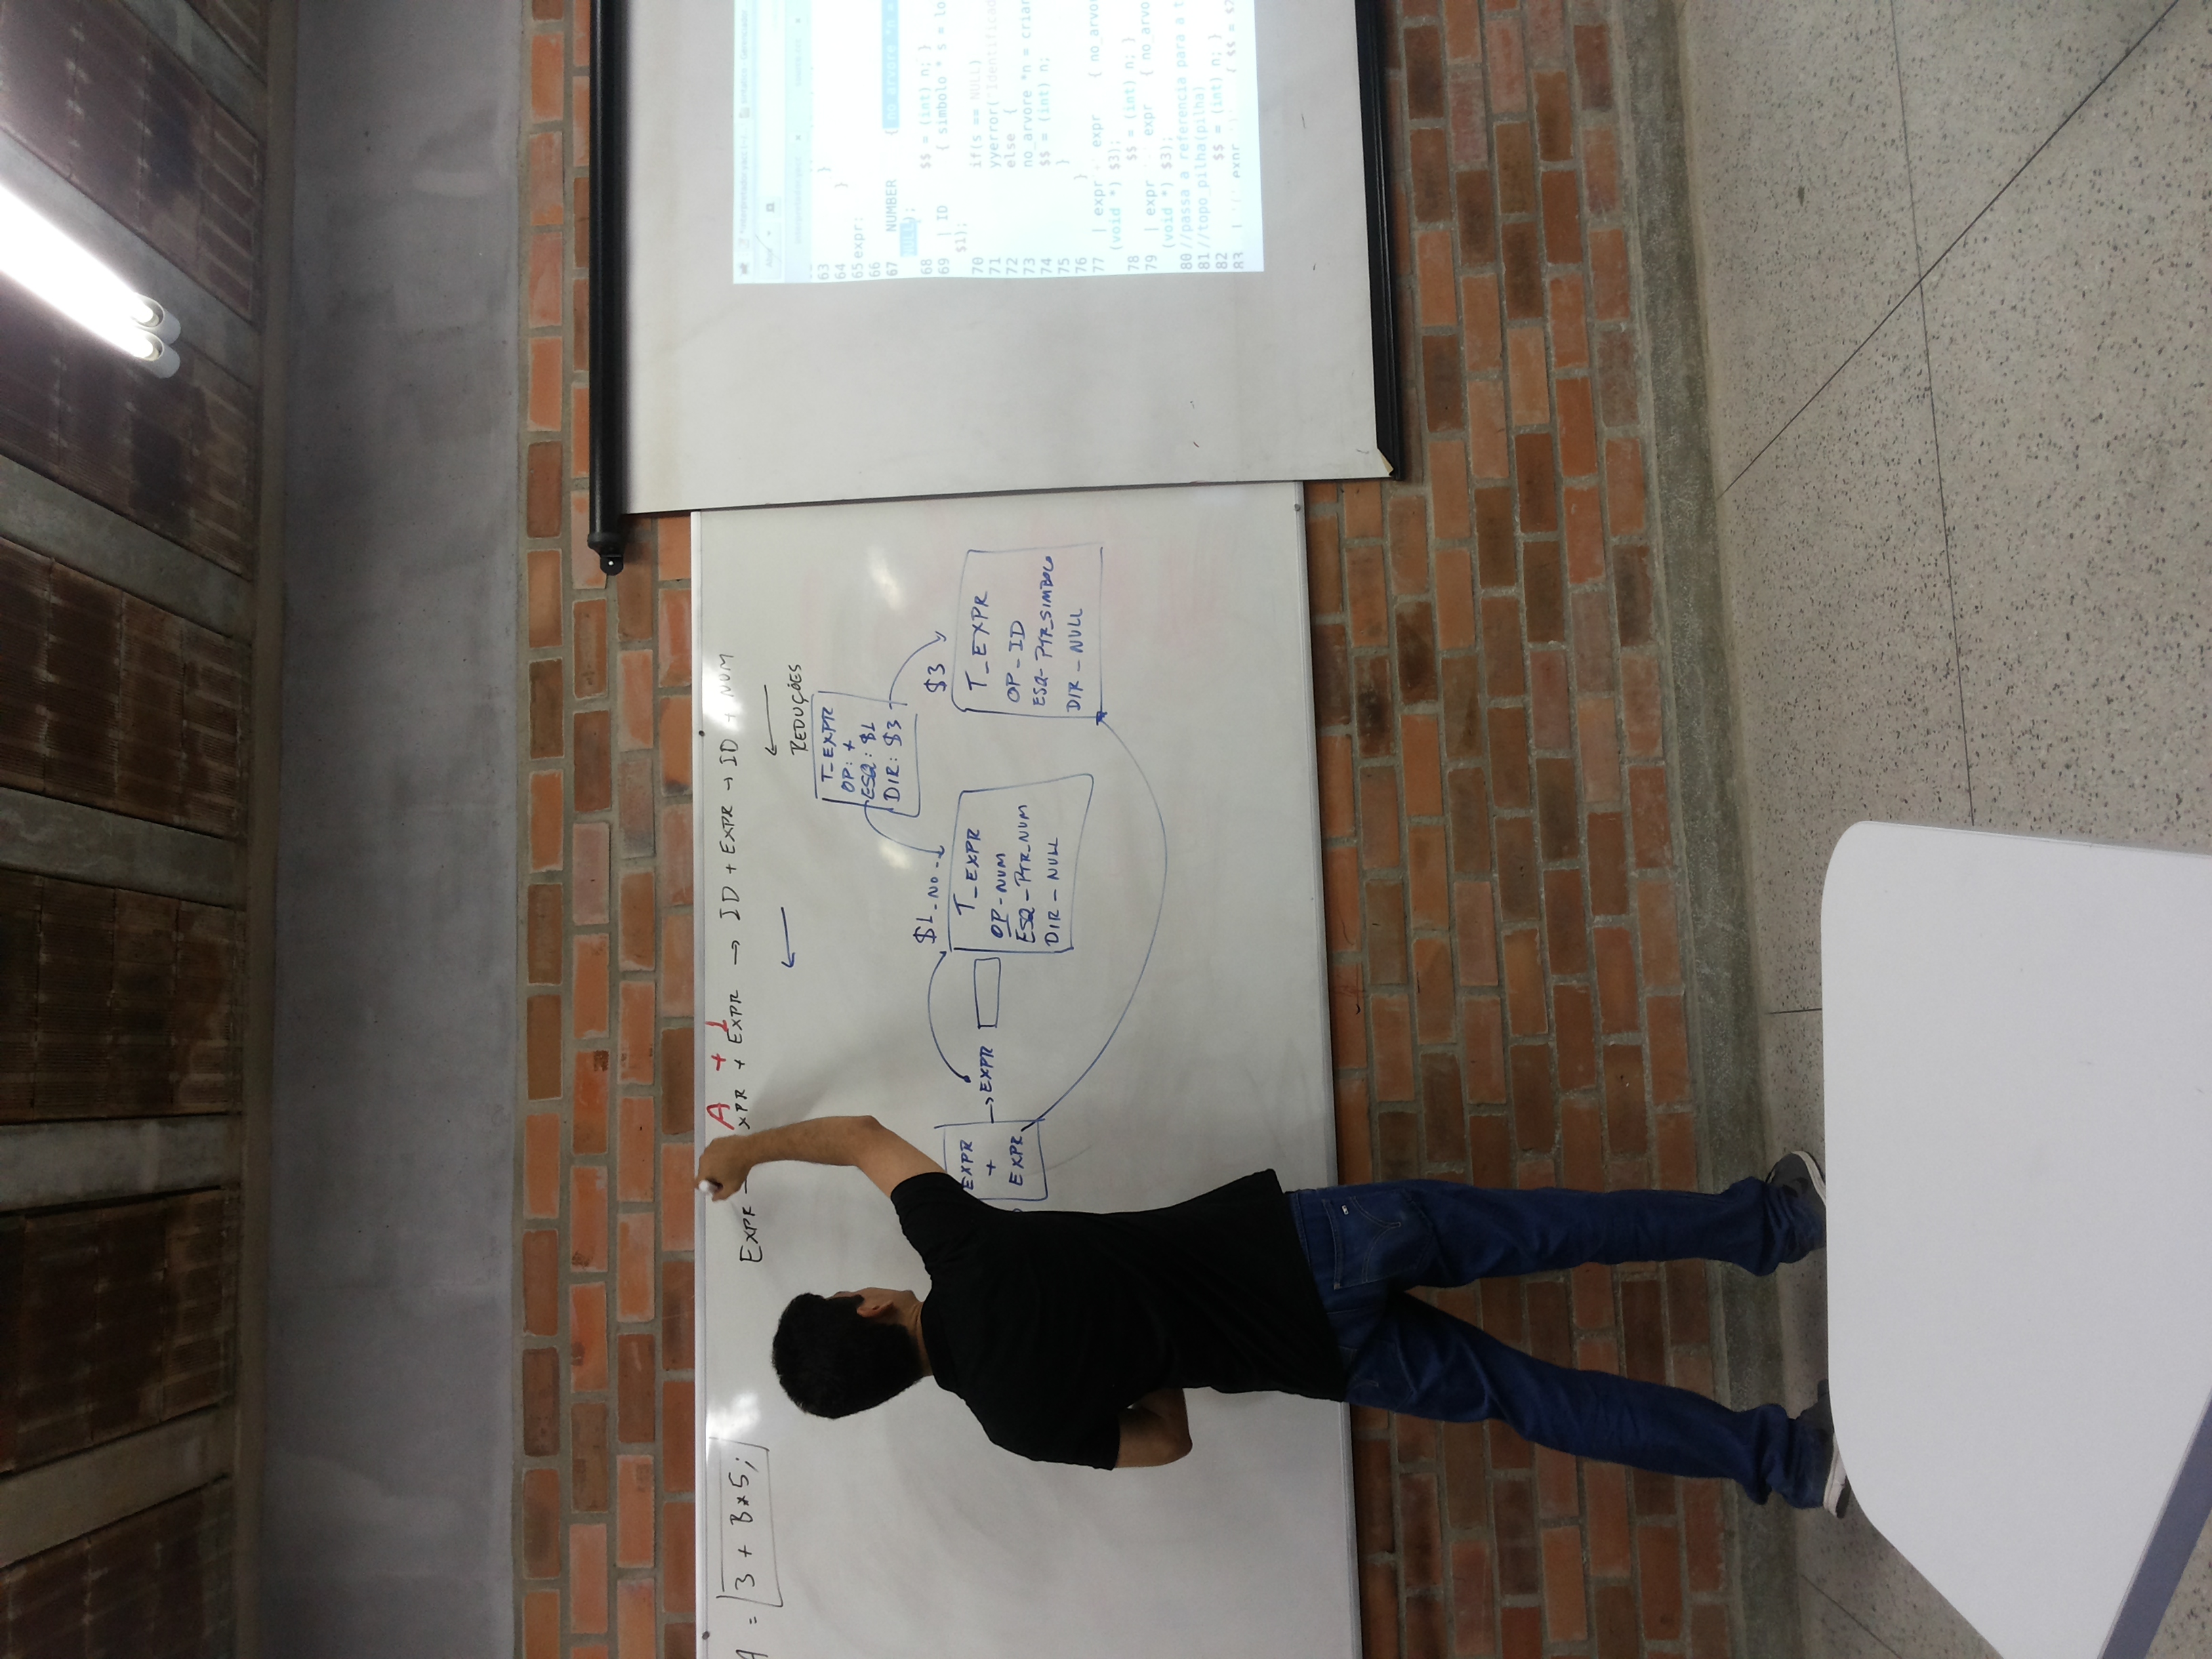 A = 3 + B*5;
A + 1
EXPR → XPR + EXPR → ID + EXPR → ID + NUM
REDUÇÕES
T_EXPR
OP: +
ESQ: $1
DIR: $3
$1_NO_
$3
EXPR
+
EXPR
→ EXPR
T_EXPR
OP-NUM
ESQ-PTR_NUM
DIR-NULL
T_EXPR
OP-ID
ESQ-PTR_SIMBOLO
DIR-NULL
63 }
64 }
65 expr:
66
67 NUMBER { no_arvore *n =
NULL);
68 $$ = (int) n; }
69 | ID { simbolo * s = lo
$1);
70 if(s == NULL)
71 yyerror("Identificad
72 else {
73 no_arvore *n = crian
74 $$ = (int) n;
75 }
76 }
77 | expr expr { no_arvor
(void *) $3);
78 $$ = (int) n; }
79 | expr expr { no_arvo
(void *) $3);
80 //passa a referencia para a t
81 //topo_pilha(pilha)
82 $$ = (int) n; }
83 expr { $$ = $2